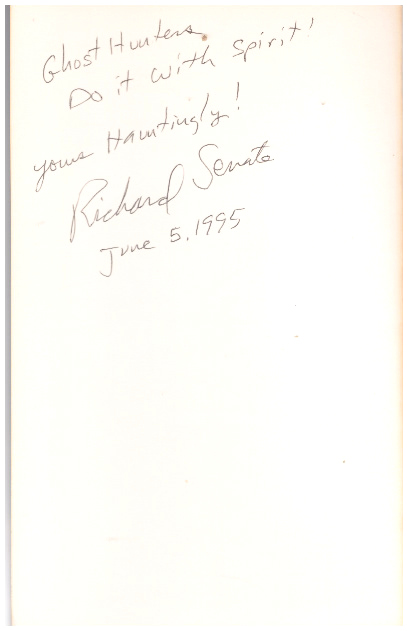 Ghost Hunters
Do it with Spirit!
yours Hauntingly!
Richard Senate
June 5, 1995